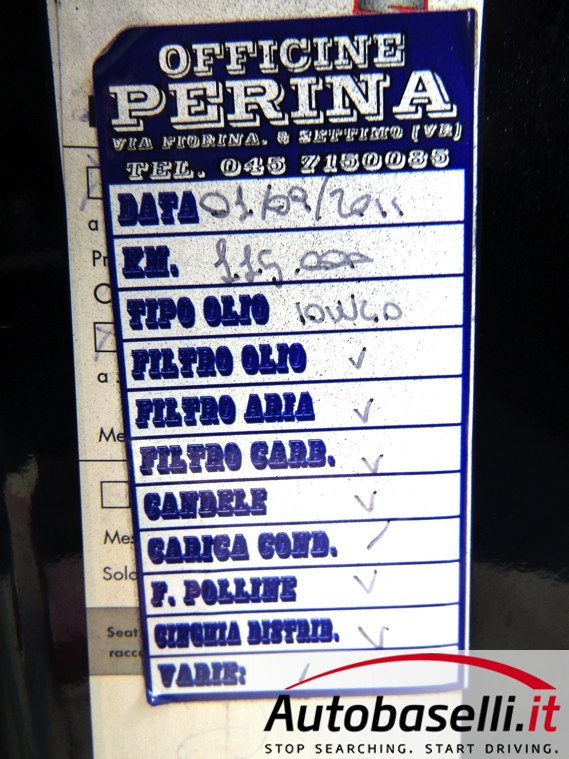 OFFICINE
PERINA
VIA FIORINA, 8 SETTIMO (VR)
TEL. 045 7150085
DATA 01/09/2011
KM. 115.000
TIPO OLIO 10W40
FILTRO OLIO ✓
FILTRO ARIA ✓
FILTRO CARB. ✓
CANDELE ✓
CARICA COND. ✓
F. POLLINE ✓
CINGHIA DISTRIB. ✓
VARIE:
a
a
Me
Mes
Solo
Seat
racco
Autobaselli.it
STOP SEARCHING. START DRIVING.